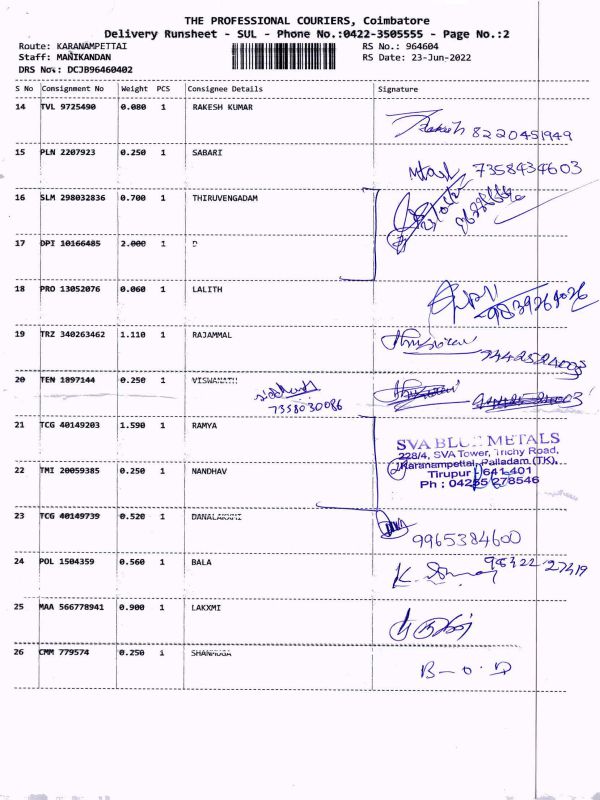 THE PROFESSIONAL COURIERS, Coimbatore
Delivery Runsheet - SUL - Phone No.:0422-3505555 - Page No.:2
Route: KARANAMPETTAI RS No.: 964604
Staff: MANIKANDAN RS Date: 23-Jun-2022
DRS No.: DCJB96460402
S No Consignment No Weight PCS Consignee Details Signature
14 TVL 9725490 0.080 1 RAKESH KUMAR
8220451949
15 PLN 2207923 0.250 1 SABARI
7358434603
16 SLM 298032836 0.700 1 THIRUVENGADAM
17 DPI 10166485 2.000 1 D
18 PRO 13052076 0.060 1 LALITH
19 TRZ 340263462 1.110 1 RAJAMMAL
20 TEN 1897144 0.250 1 VISWANATH
7358030086
21 TCG 40149203 1.590 1 RAMYA
SVA BLUE METALS
228/4, SVA Tower, Trichy Road,
Karanampettai, Palladam (TK),
Tirupur - 641 401
Ph : 04255 278546
22 TMI 20059385 0.250 1 NANDHAV
23 TCG 40149739 0.520 1 DANALAKXMI
9965384600
24 POL 1504359 0.560 1 BALA
25 MAA 566778941 0.900 1 LAKXMI
26 CMM 779574 0.250 1 SHANMUGA